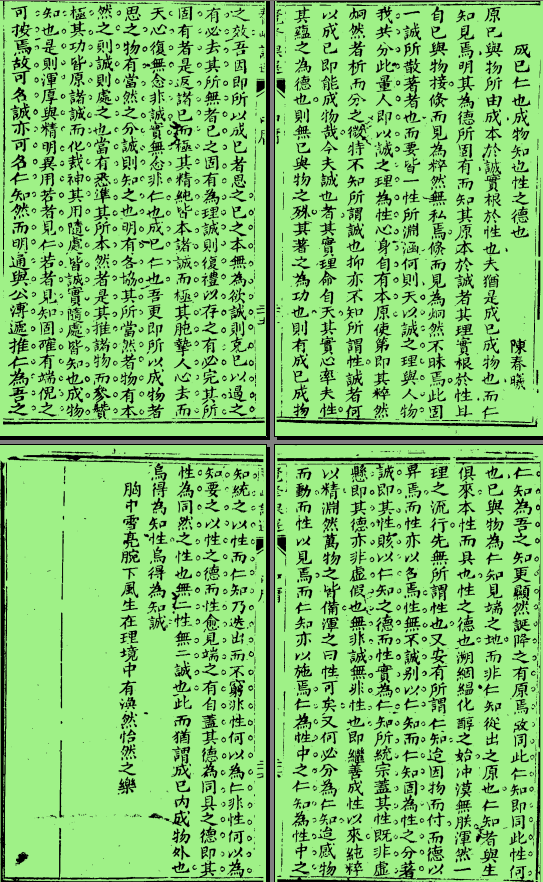 成己仁也成物知也性之德也　陳春曦
原己與物所由成本於誠實根於性也夫猶是成己成物也而仁
知見焉明其為德所固有而知其原本於誠者其理實根於性且
自己與物接條而見為粹然無私焉條而見為炯然不昧焉此固
一誠所散著者也而要皆一性所淵涵何則天以誠之理與人物
我共分此量人即以誠之理為性心身自有本原使第即其粹然
炯然者析而分之微特不知所謂誠也抑亦不知所謂性誠者何
以成己即能成物哉今夫誠也者其實理命自天其實心率夫性
其蘊之為德也則無己與物之殊其著之為功也則有成己成物
之效吾因即所以成己者思之己之本無為欲誠則克己以遏之
有必去其所無者己之固有為理誠則復禮以存之有必完其所
固有者是返諸己而極其精純皆本諸誠而極其肫摯人心去而
天心復無忝非誠實無忝非仁也成己仁也吾更即所以成物者
思之物有當然之分誠則知之也明有各協其所當然者物有本
然之則誠則處之也當有悉準其所本然者是其推諸物而參贊
極其功皆原諸誠而化裁神其用隨處皆誠實隨處皆知也成物
知也是則渾厚與精明異用若者見仁若者見知固確有端倪之
可按焉故可名誠亦可名仁知然而明通與公溥遞推仁為吾之
仁知為吾之知更顯然誕降之有原焉故同此仁知即同此性何
也己與物為仁知見端之地而非仁知從出之原也仁知者與生
俱來本性而具也性之德也溯絪縕化醇之始沖漠無朕渾然一
理之流行先無所謂性也又安有所謂仁知迨因物而付而德以
畀焉而性亦以名焉性無不誠別以仁知而仁知固為性之分著
誠即其性賅以仁知之德而性實為仁知所統宗蓋其性既非虛
懸即其德亦非虛假也無非誠無非性也即繼善成性以來純粹
以精淵然萬物之皆備渾之曰性可矣又何必分為仁知迨感物
而動而性以見焉而仁知亦以施焉仁為性中之仁知為性中之
知統之以性而仁知乃迭出而不窮非性何以為仁非性何以為
知要之以性之德而性愈見端之有自蓋其德為同具之德即其
性為同然之性也無二性無二誠也此而猶謂成己內成物外也
烏得為知性烏得為知誠
胸中雪亮腕下風生在理境中有渙然怡然之樂